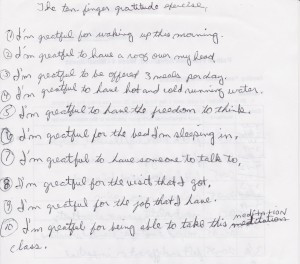 The ten finger gratitude exercise,
① I'm greatful for waking up this morning.
② I'm greatful to have a roof over my head
③ I'm greatful to be offered 3 meals per day.
④ I'm greatful to have hot and cold running water.
⑤ I'm greatful to have the freedom to think.
⑥ I'm greatful for the bed I'm sleeping in.
⑦ I'm greatful to have someone to talk to,
⑧ I'm greatful for the visit that I got,
⑨ I'm greatful for the job that I have.
⑩ I'm greatful for being able to take this meditation
class.